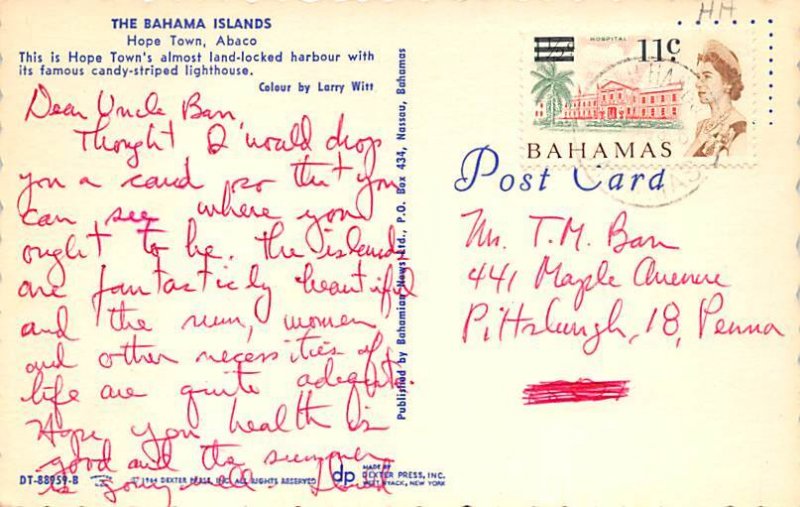 THE BAHAMA ISLANDS
Hope Town, Abaco
This is Hope Town's almost land-locked harbour with
its famous candy-striped lighthouse.
Colour by Larry Witt
Dear Uncle Barr,
Thought I would drop
you a card so that you
can see where you
ought to be. The islands
are fantasticly beautiful
and the rum, women
and other necessities of
life are quite adequate.
Hope you health is
good and the summer
is going well -
DT-88959-B
© 1964 DEXTER PRESS, INC. ALL RIGHTS RESERVED
dp
MADE BY
DEXTER PRESS, INC.
WEST NYACK, NEW YORK
Published by Bahamian News Ltd., P.O. Box 434, Nassau, Bahamas
HH
HOSPITAL
11c
BAHAMAS
Post Card
Mr. T.M. Barr
441 Maple Avenue
Pittsburgh, 18, Penna